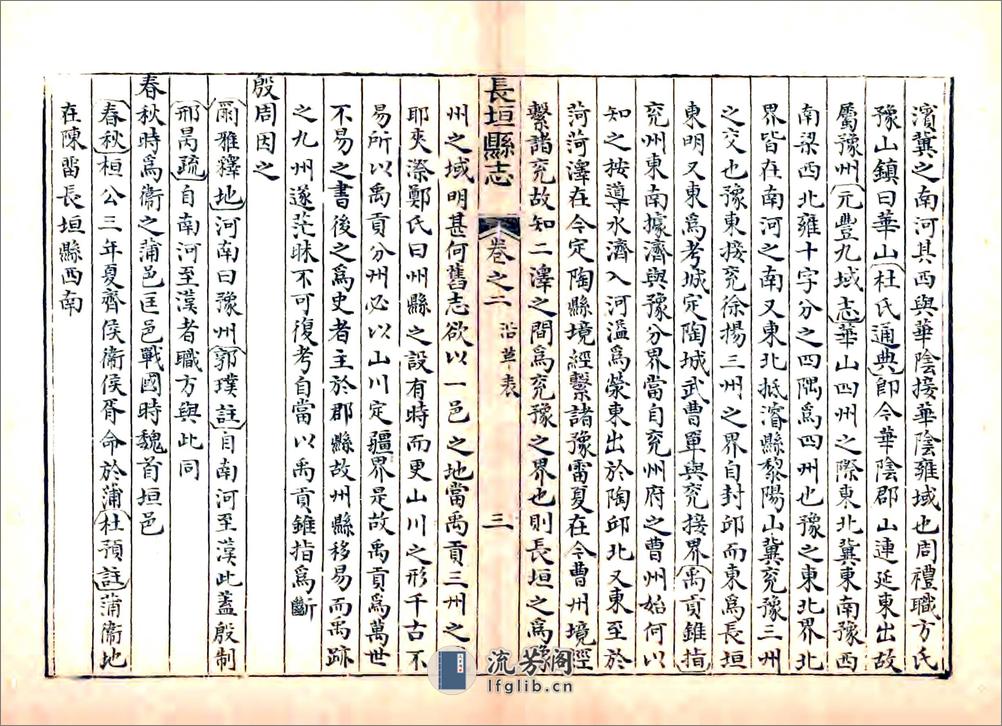 濱冀之南河其西與華陰接華陰雍域也周禮職方氏
豫山鎮曰華山杜氏通典卽今華陰郡山連延東出故
屬豫州元豐九域志華山四州之際東北冀東南豫西
南梁西北雍十字分之四隅爲四州也豫之東北界北
界皆在南河之南又東北抵濬縣黎陽山冀兖豫三州
之交也豫東接兖徐揚三州之界自封邱而東爲長垣
東明又東爲考城定陶城武曹單與兖接界禹貢錐指
兖州東南據濟與豫分界當自兖州府之曹州始何以
知之按導水濟入河溢爲滎東出於陶邱北又東至於
菏菏澤在今定陶縣境經繫諸豫雷夏在今曹州境經
繫諸兖故知二澤之間爲兖豫之界也則長垣之爲
長垣縣志 卷之二 沿革表 三
州之域明甚何舊志欲以一邑之地當禹貢三州之
耶夾漈鄭氏曰州縣之設有時而更山川之形千古不
易所以禹貢分州必以山川定疆界是故禹貢爲萬世
不易之書後之爲史者主於郡縣故州縣移易而禹跡
之九州遂茫昧不可復考自當以禹貢錐指爲斷
殷周因之
爾雅釋地河南曰豫州郭璞註自南河至漢此蓋殷制
邢昺疏自南河至漢者職方與此同
春秋時爲衞之蒲邑匡邑戰國時魏首垣邑
春秋桓公三年夏齊侯衞侯胥命於蒲杜預註蒲衞地
在陳畱長垣縣西南
流芳阁
lfglib.cn